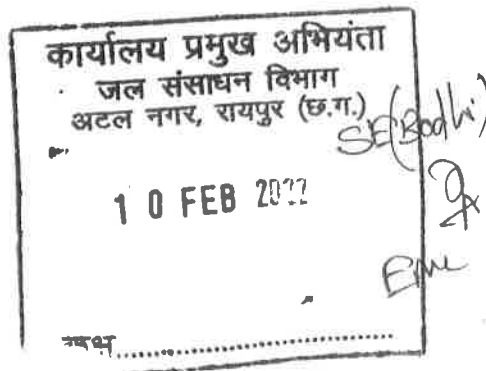 कार्यालय प्रमुख अभियंता
जल संसाधन विभाग
अटल नगर, रायपुर (छ.ग.)
SE(Bodhi)
10 FEB 2022